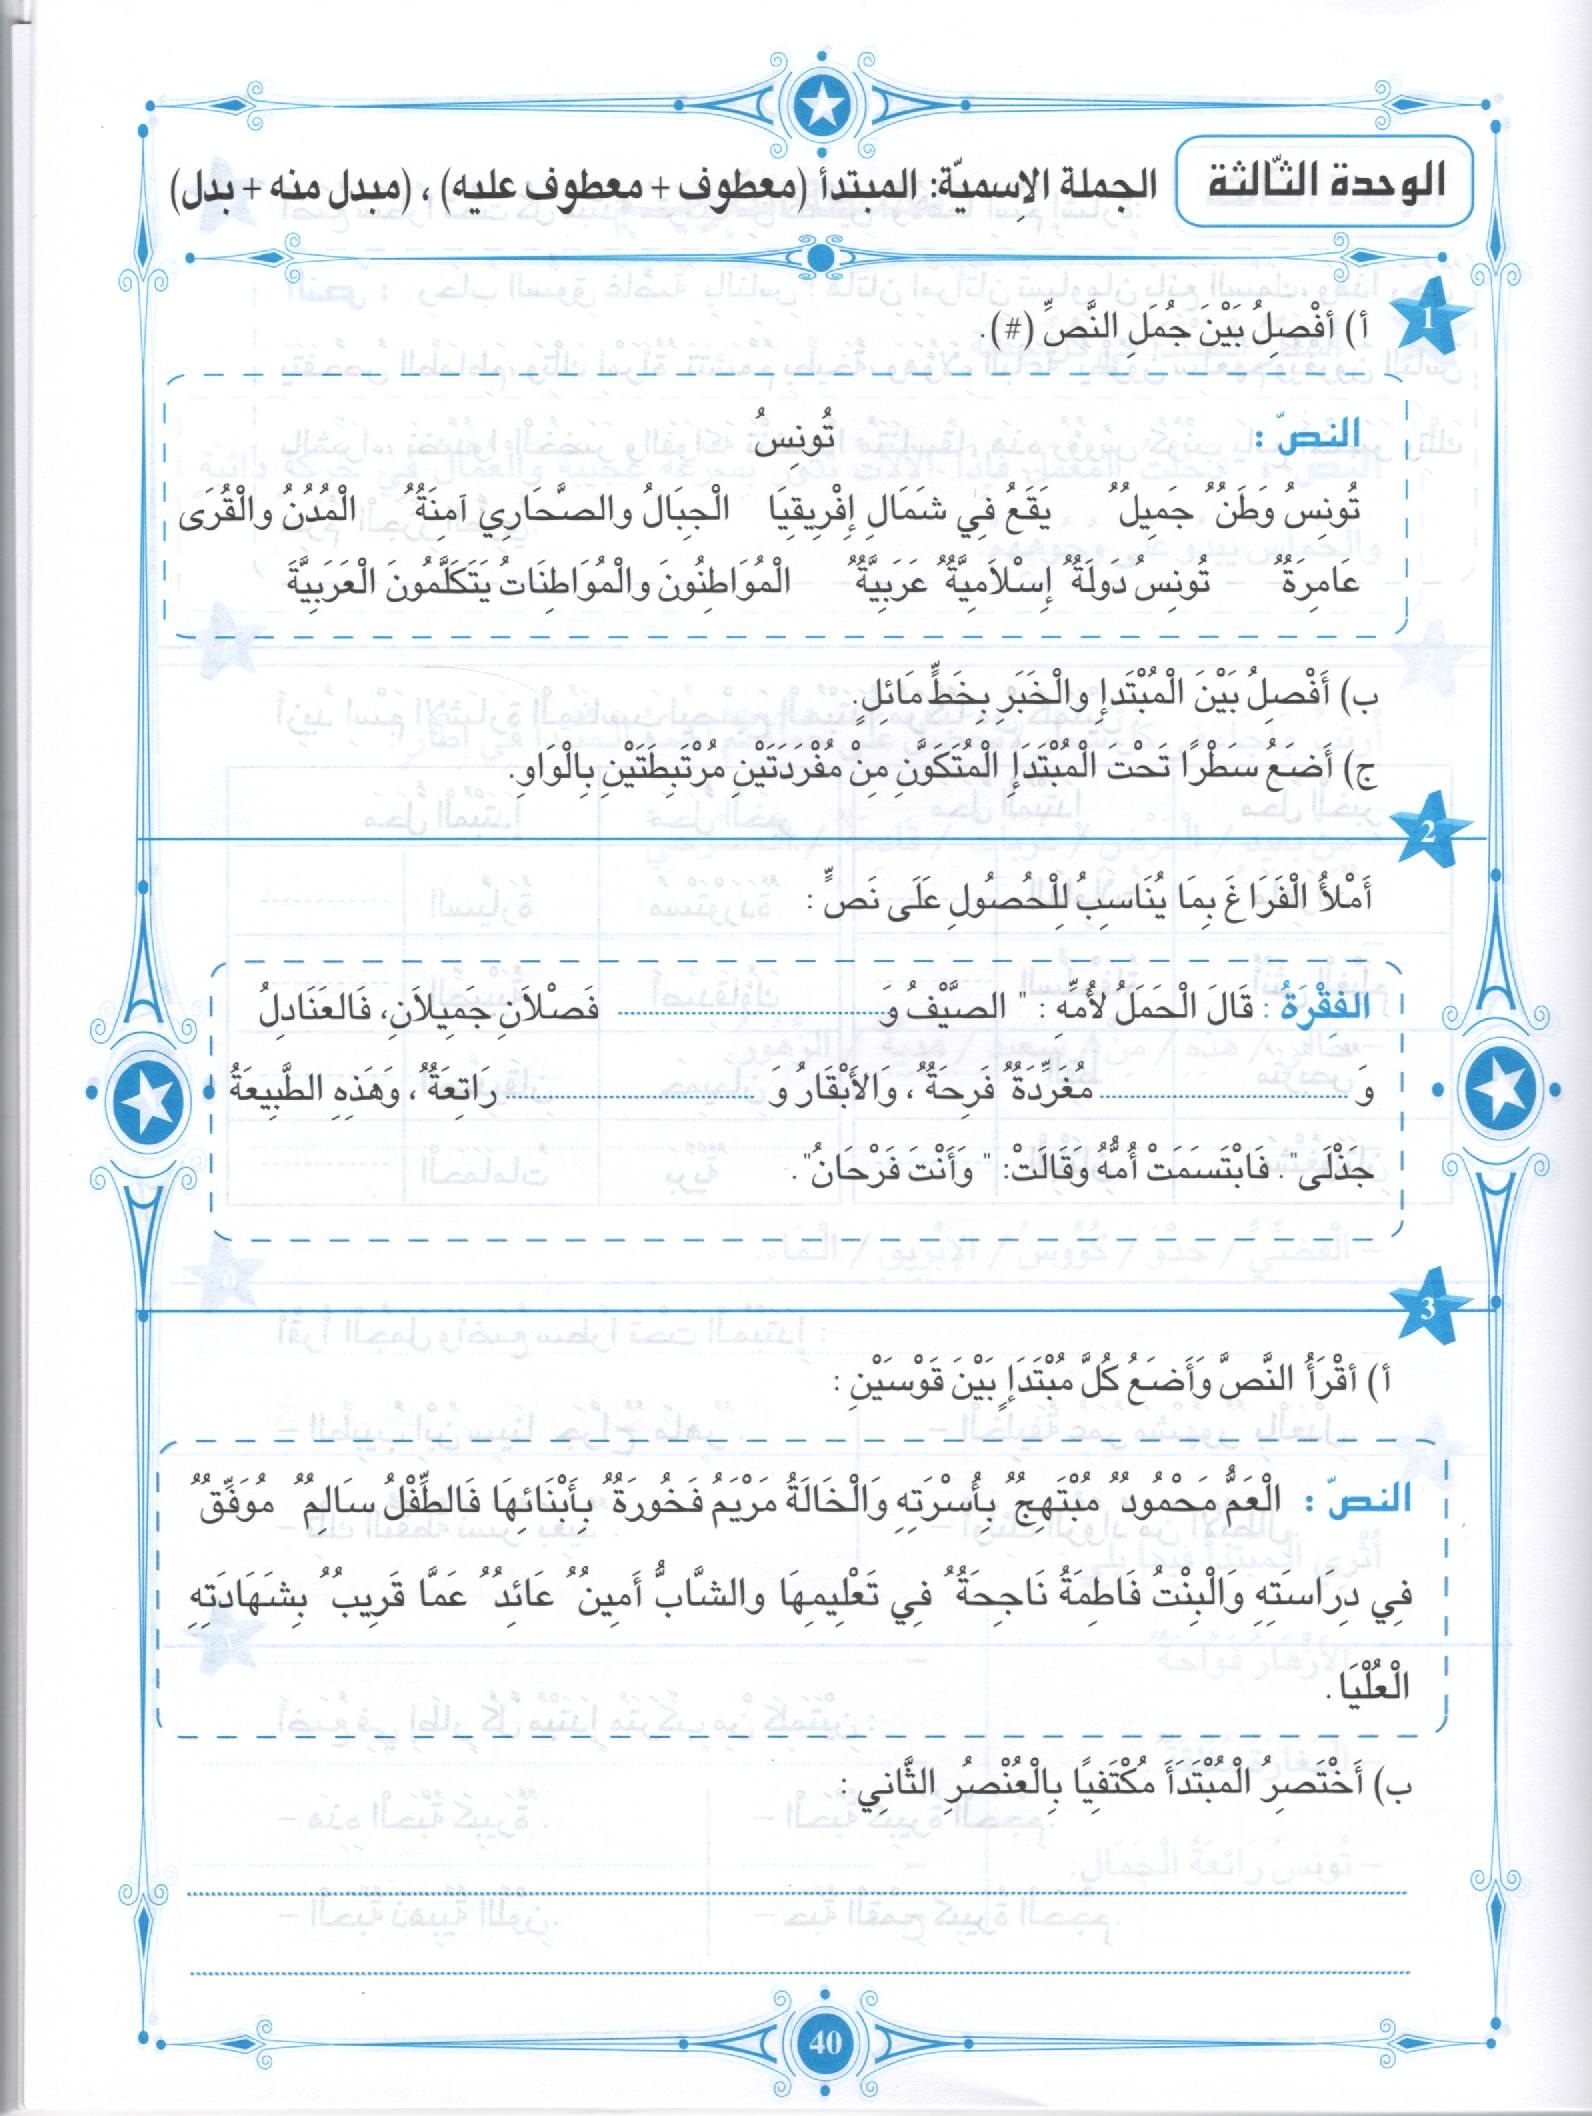 الوحدة الثّالثة
الجملة الإسميّة: المبتدأ (معطوف + معطوف عليه) ، (مبدل منه + بدل)
1
أ) أفْصِلُ بَيْنَ جُمَلِ النَّصِّ (#).
النصّ :
تُونِسُ
تُونِسُ وَطَنٌ جَمِيلٌ يَقَعُ فِي شَمَالِ إِفْرِيقِيَا الْجِبَالُ والصَّحَارِي آمِنَةٌ الْمُدُنُ والْقُرَى
عَامِرَةٌ تُونِسُ دَوْلَةٌ إِسْلاَمِيَّةٌ عَرَبِيَّةٌ الْمُوَاطِنُونَ والْمُوَاطِنَاتُ يَتَكَلَّمُونَ الْعَرَبِيَّةَ
ب) أَفْصِلُ بَيْنَ الْمُبْتَدَإِ والْخَبَرِ بِخَطٍّ مَائِلٍ.
ج) أَضَعُ سَطْرًا تَحْتَ الْمُبْتَدَإِ الْمُتَكَوَّنِ مِنْ مُفْرَدَتَيْنِ مُرْتَبِطَتَيْنِ بِالْوَاوِ.
2
أَمْلأُ الْفَرَاغَ بِمَا يُنَاسِبُ لِلْحُصُولِ عَلَى نَصٍّ :
الفِقْرَةُ : قَالَ الْحَمَلُ لأُمِّهِ : " الصَّيْفُ وَ .................... فَصْلاَنِ جَمِيلاَنِ، فَالعَنَادِلُ
وَ .................... مُغَرِّدَةٌ فَرِحَةٌ ، وَالأَبْقَارُ وَ .................... رَاتِعَةٌ ، وَهَذِهِ الطَّبِيعَةُ
جَذْلَى". فَابْتَسَمَتْ أُمُّهُ وَقَالَتْ: " وَأَنْتَ فَرْحَانُ".
3
أ) أقْرَأُ النَّصَّ وَأَضَعُ كُلَّ مُبْتَدَإٍ بَيْنَ قَوْسَيْنِ :
النصّ : الْعَمُّ مَحْمُودٌ مُبْتَهِجٌ بِأُسْرَتِهِ وَالْخَالَةُ مَرْيَمُ فَخُورَةٌ بِأَبْنَائِهَا فَالطِّفْلُ سَالِمٌ مُوَفَّقٌ
فِي دِرَاسَتِهِ وَالْبِنْتُ فَاطِمَةُ نَاجِحَةٌ فِي تَعْلِيمِهَا والشَّابُّ أَمِينٌ عَائِدٌ عَمَّا قَرِيبٌ بِشَهَادَتِهِ
الْعُلْيَا .
ب) أَخْتَصِرُ الْمُبْتَدَأَ مُكْتَفِيًا بِالْعُنْصُرِ الثَّانِي :
40